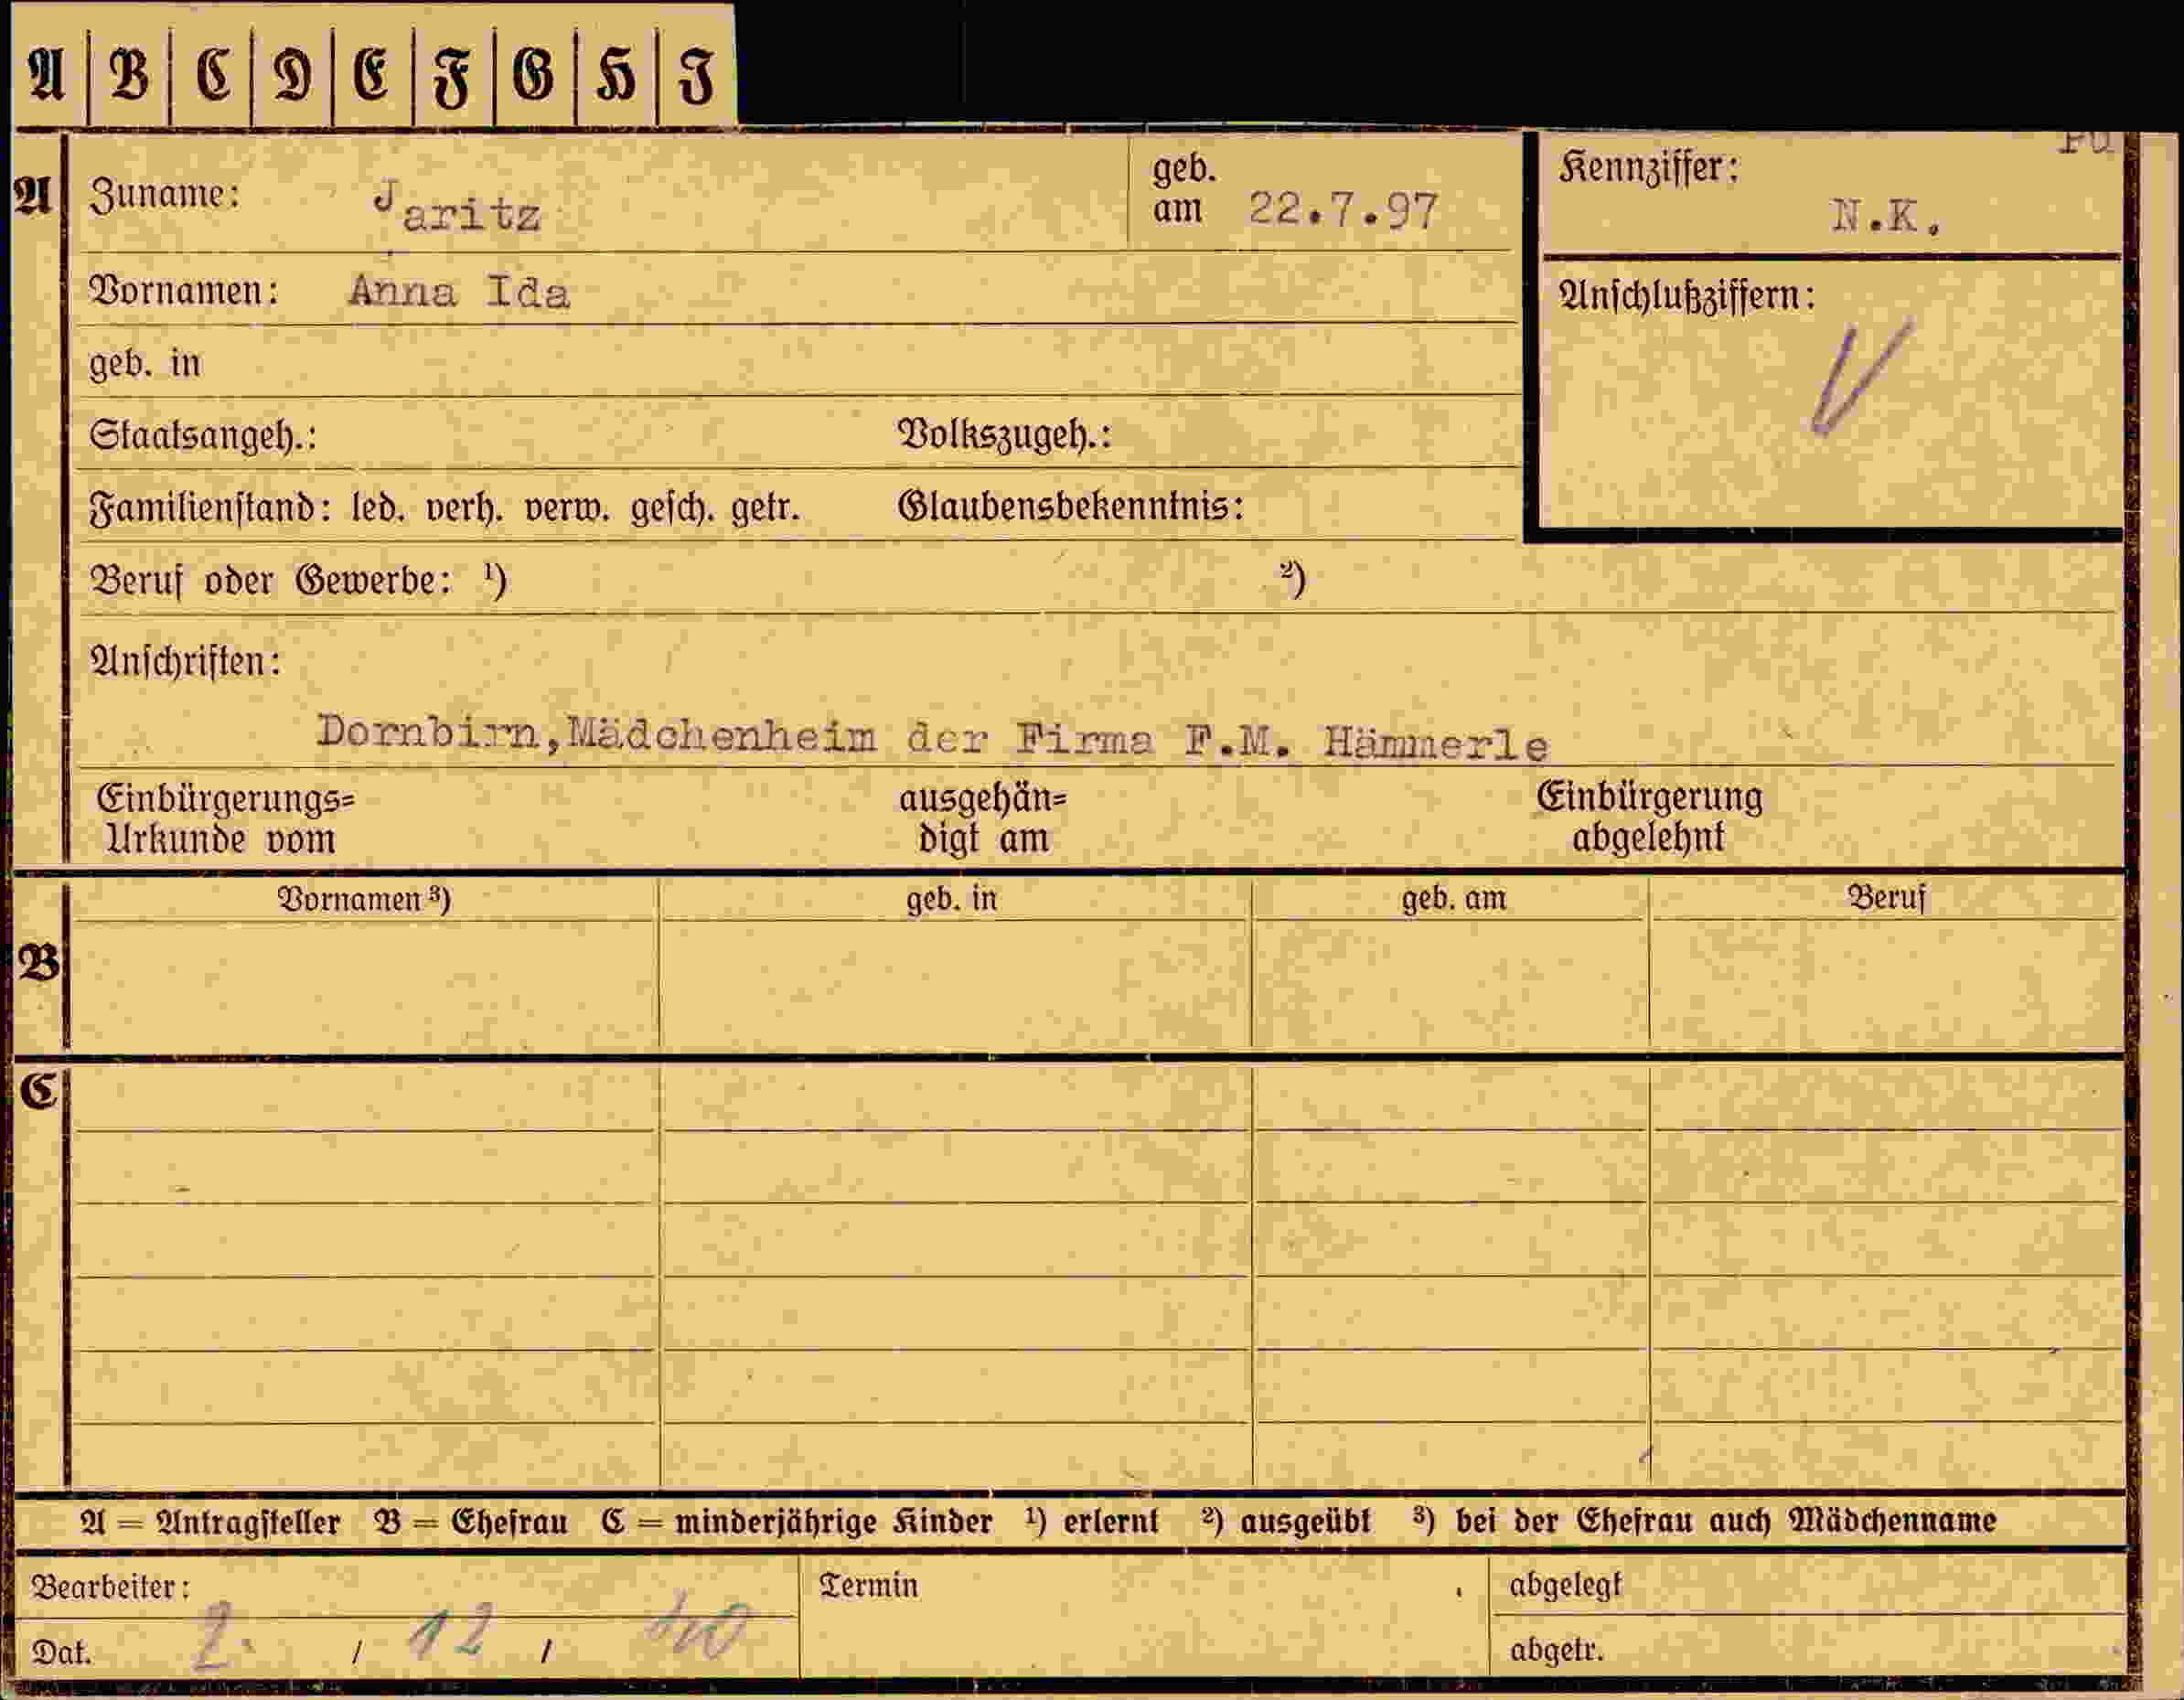 A B C D E F G H I
A Zuname: Jaritz geb. am 22.7.97 Kennziffer: N.K.
Vornamen: Anna Ida Anschlußziffern:
geb. in
Staatsangeh.: Volkszugeh.:
Familienstand: led. verh. verw. gesch. getr. Glaubensbekenntnis:
Beruf oder Gewerbe: ¹) ²)
Anschriften:
Dornbirn,Mädchenheim der Firma F.M. Hämmerle
Einbürgerungs= ausgehän= Einbürgerung
Urkunde vom digt am abgelehnt
Vornamen ³) geb. in geb. am Beruf
B
C
A = Antragsteller B = Ehefrau C = minderjährige Kinder ¹) erlernt ²) ausgeübt ³) bei der Ehefrau auch Mädchenname
Bearbeiter: Termin abgelegt
Dat. 2. / 12 / 40 abgetr.